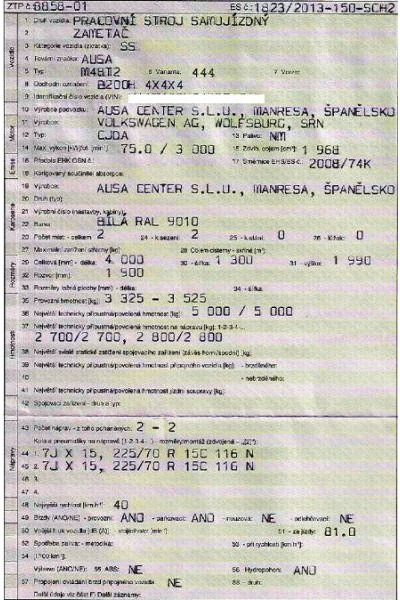 ZTP č: 8858-01 ES č.: 1823/2013-150-SCH2
1 Druh vozidla: PRACOVNÍ STROJ SAMOJÍZDNÝ
2 ZAMETAČ
3 Kategorie vozidla (zkratka): SS
4 Tovární značka: AUSA
5 Typ: M4BT2 6 Varianta: 444 7 Verze:
8 Obchodní označení: B200H 4X4X4
9 Identifikační číslo vozidla (VIN):
10 Výrobce podvozku: AUSA CENTER S.L.U., MANRESA, ŠPANĚLSKO
11 Výrobce VOLKSWAGEN AG, WOLFSBURG, SRN
12 Typ: CJDA 13 Palivo: NM
14 Max. výkon [kW/ot.min⁻¹]: 75.0 / 3 000 15 Zdvih. objem [cm³]: 1 968
16 Předpis EHK OSN č.: 17 Směrnice EHS/ES č.: 2008/74K
18 Korigovaný součinitel absorpce:
19 Výrobce: AUSA CENTER S.L.U., MANRESA, ŠPANĚLSKO
20 Druh (typ):
21 Výrobní číslo (nástavby, kabiny):
22 Barva: BÍLÁ RAL 9010
23 Počet míst - celkem 2 24 - k sezení: 2 25 - k stání: 0 26 - lůžek: 0
27 Maximální zatížení střechy [kg]: 28 Objem cisterny - skříně [m³]:
29 Celková [mm] - délka: 4 000 30 - šířka: 1 300 31 - výška: 1 990
32 Rozvor [mm]: 1 900
33 Rozměry ložné plochy [mm] - délka: 34 - šířka:
35 Provozní hmotnost [kg]: 3 325 - 3 525
36 Největší technicky přípustná/povolená hmotnost [kg]: 5 000 / 5 000
37 Největší technicky přípustná/povolená hmotnost na nápravu [kg]: 1-2-3-4...
2 700/2 700, 2 800/2 800
38 Největší svislé statické zatížení spojovacího zařízení (závěs horní/spodní) [kg]:
39 Největší technicky přípustná/povolená hmotnost přípojného vozidla [kg] - brzděného:
40 - nebrzděného:
41 Největší technicky přípustná/povolená hmotnost jízdní soupravy [kg]:
42 Spojovací zařízení - druh a typ:
43 Počet náprav - z toho poháněných: 2 - 2
Kola a pneumatiky na nápravě (1-2-3-4...) - rozměry/montáž
44 1. 7J X 15, 225/70 R 15C 116 N
45 2. 7J X 15, 225/70 R 15C 116 N
46 3.
47 4.
48 Nejvyšší rychlost [km.h⁻¹]: 40
49 Brzdy (ANO/NE) - provozní: ANO - parkovací: ANO - nouzová: NE - odlehčovací: NE
50 Vnější hluk vozidla [dB (A)] - stojící/otáčky [min⁻¹]: 51 - za jízdy: 81.0
52 Spotřeba paliva - metodika: 53 - při rychlosti [km.h⁻¹]:
54 [l/100 km]:
Výbava (ANO/NE): 55 ABS: NE 56 Hydropohon: ANO
57 Propojení ovládání brzd přípojného vozidla: NE 58 - druh:
Další údaje viz část F) Další záznamy: